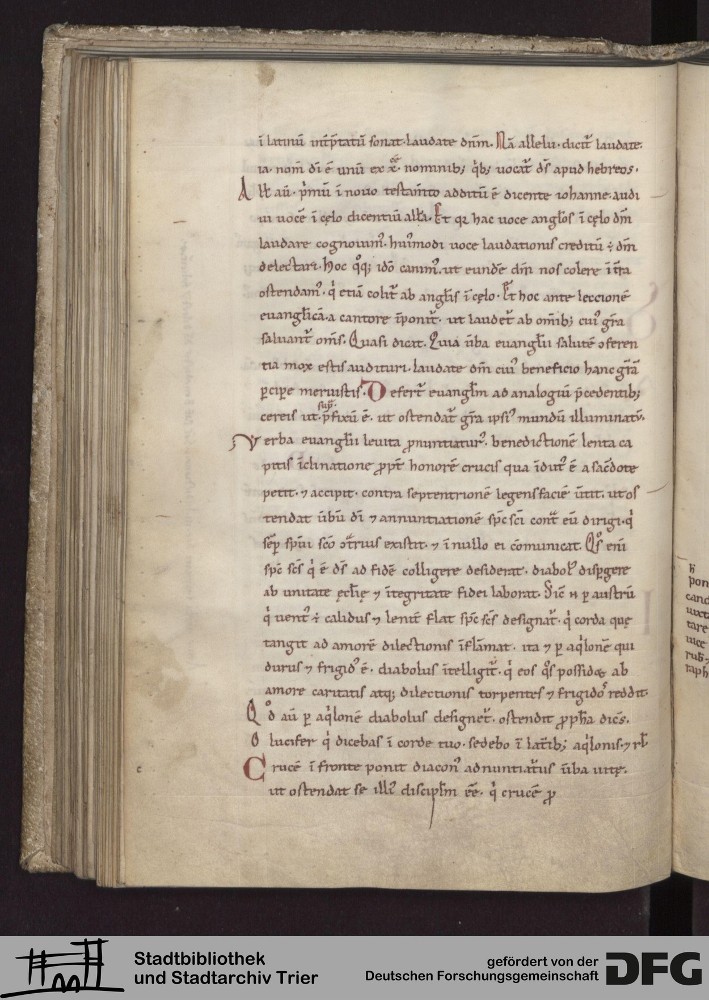 ī latinū int̄p̄tatū sonat. laudate dn̄m. Nā allelu. dicit̄ laudate.
ia. nom̄ dī ē unū ex x̄. nominib; qb; uocat̄ ds̄ apud hebreos.
All̄ aū. p̄mū ī nouo testam̄to additū ē dicente iohanne. audi
ui uocē ī cęlo dicentiū all̄a. Et qꝛ hac uoce anglōs ī cęlo dm̄
laudare cognouim᾽. hui᾽modi uoce laudationis creditū ÷ dm̄
delectari. Hoc qͦq; idō canim᾽. ut eundē dm̄ nos colere ī t̄ra
ostendam᾽. qͥ etiā colit̄ ab anglīs ī cęlo. Et hoc ante leccionē
euangl̄icā. a cantore īponit̄. ut laudet̄ ab om̄ib; cui᾽ gr̄a
saluant̄ om̄s. Quasi dicit. Quia ūba euangl̄ii salutē ɔferen
tia mox estis audituri. laudate dm̄ cui᾽ beneficio hanc gr̄ā
ꝑcipe meruistis. Defert̄ euangl̄m ad analogiū p̄cedentib;
cereis ut sup̄ p̄fixū ē. ut ostendat̄ gr̄a ipsi᾽ mundū illuminatū.
Verba euangl̄ii leuita ꝓnuntiatur᾽. benedictionē lenta ca
pitis īclinatione ꝓpt̄ honorē crucis qua īdut᾽ ē a sacēdote
petit. ⁊ accipit. contra septentrionē legens faciē ūtit. ut os
tendat ūbū dī ⁊ annuntiationē spc̄ sc̄i cont̄ eū dirigi. qͥ
sēp sp̄ui sc̄o ɔt̄rius existit. ⁊ ī nullo ei cōmunicat. Qͦs eni
spc̄ sc̄s qͥ ē ds̄ ad fidē colligere desiderat. diabol᾽ disp̄gere
ab unitate ęcl̄ię ⁊ ītegritate fidei laborat. Sic̄ n̄ ꝑ austrū
qͥ uent᾽ ÷ calidus ⁊ lenit̄ flat spc̄ sc̄s designat̄. qͥ corda quę
tangit ad amorē dilectionis īflām̄at. ita ⁊ ꝑ aqͥlonē qui
durus ⁊ frigid᾽ ē. diabolus ītelligit̄. qͥ eos qͦs possidet ab
amore caritatis atq; dilectionis torpentes ⁊ frigidos reddit.
Qͦd aū ꝑ aqͥlonē diabolus designet̄. ostendit ꝓph̄a dicēs.
O lucifer qͥ dicebas ī corde tuo. sedebo ī lat̄ib; aqͥlonis. ⁊ rl̄.
Crucē ī fronte ponit diacon᾽ adnuntiat̄us ūba uitę.
ut ostendat se illi᾽ discipl̄m eē. qͥ crucē ꝓ
c
pon
cand
tare
uice
raph
Stadtbibliothek
und Stadtarchiv Trier
gefördert von der
Deutschen Forschungsgemeinschaft
DFG